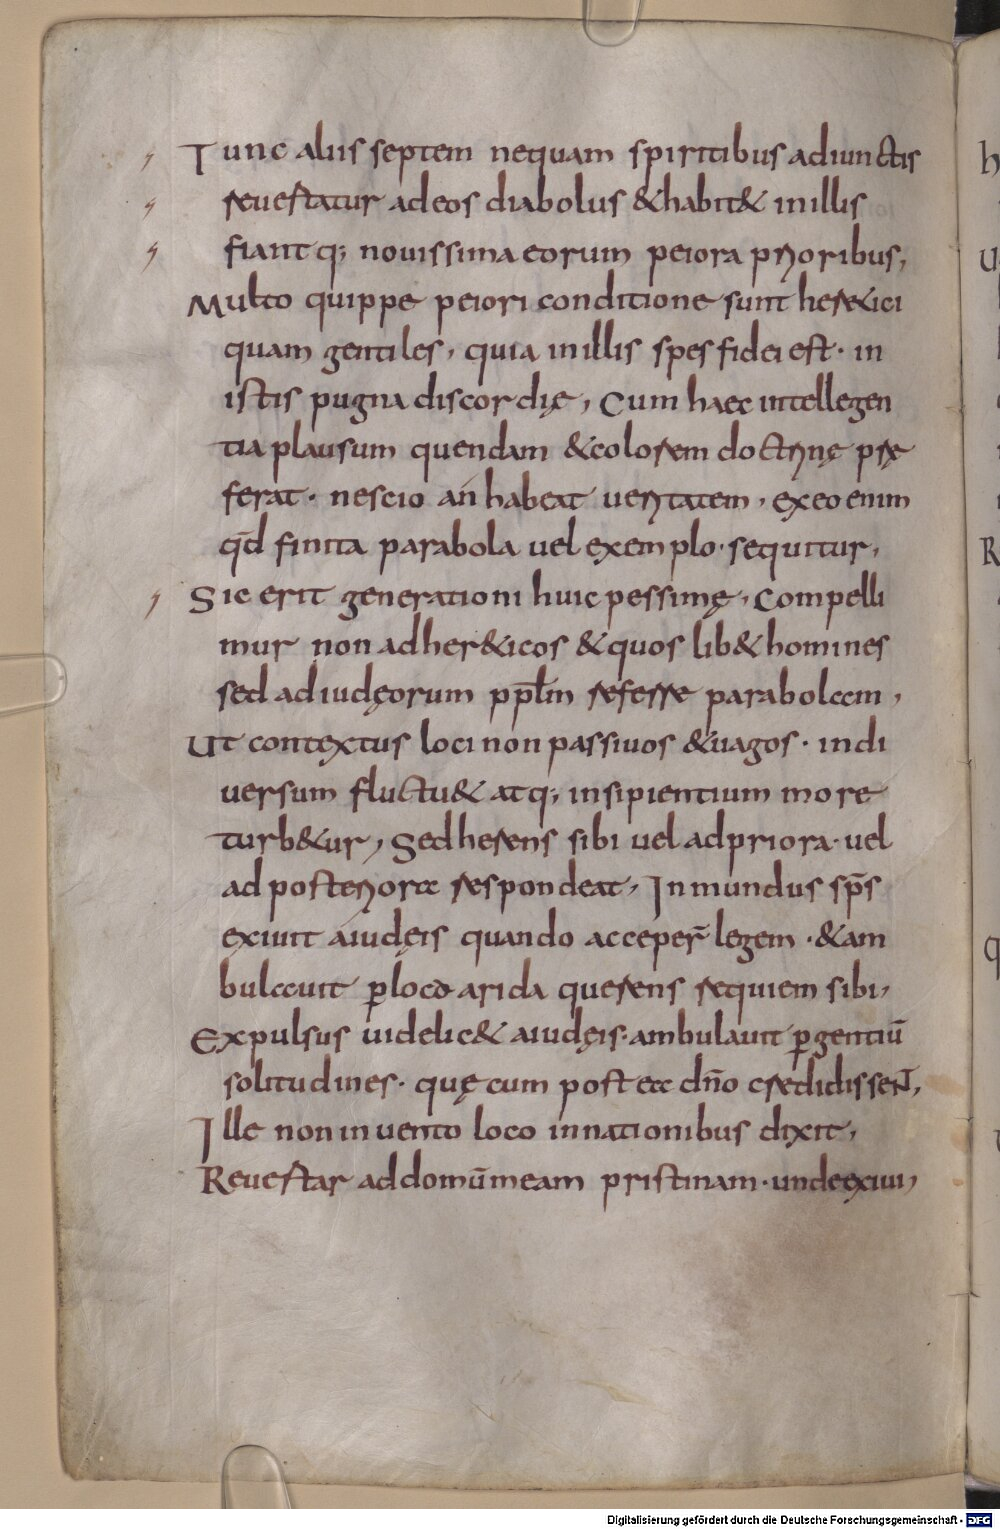 Tunc aliis septem nequam spiritibus adiunctis
reuertatur ad eos diabolus & habit& in illis
fiant q; nouissima eorum peiora prioribus,
Multo quippe peiori conditione sunt her&ici
quam gentiles, quia in illis spes fidei est · in
istis pugna discordię, Cum haec intellegen
tia plausum quendam & colorem doctrinę prę
ferat · nescio an habeat ueritatem, ex eo enim
qd̄ finita parabola uel exemplo · sequitur,
Sic erit generationi huic pessimę, Compelli
mur non ad her&icos & quos lib& homines
sed ad iudęorum pplm̄ referre parabolam,
Ut contextus loci non passiuos & uagos · in di
uersum fluctu& atq; insipientium more
turb&ur, Sed herens sibi uel ad priora · uel
ad posteriora respondeat, Inmundus sp̄s
exiuit a iudęis quando acceper̄ legem · & am
bulauit ꝑ loca arida querens requiem sibi,
Expulsus uidelic& a iudęis · ambulauit ꝑ gentiū
solitudines · quę cum postea dn̄o credidissent,
Ille non inuento loco in nationibus dixit,
Reuertar ad domū meam pristinam · unde exiui,
h
u
R
q
Digitalisierung gefördert durch die Deutsche Forschungsgemeinschaft - DFG